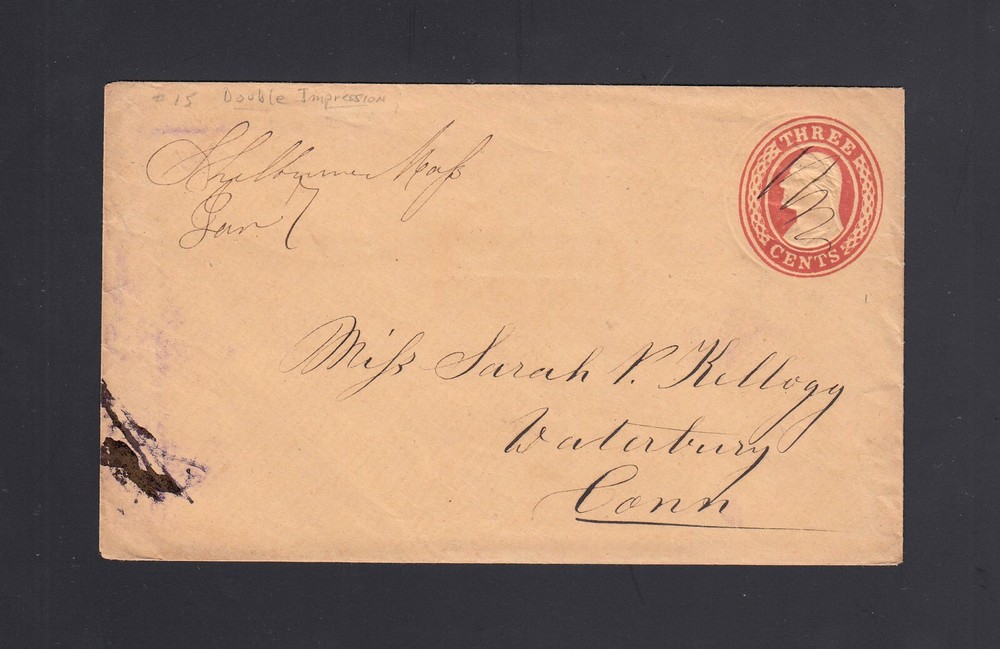 # 15 Double Impression
Shelburne Mass
Jan 7
THREE
CENTS
Miss Sarah P. Kellogg
Waterbury
Conn